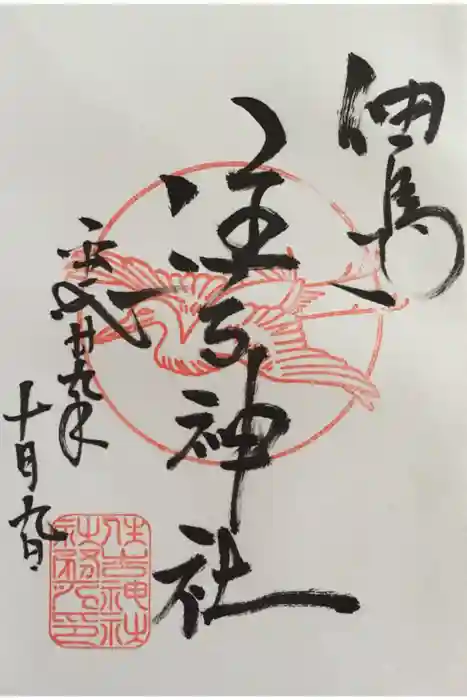 佃島
住吉神社
平成廿九年
十月九日
住吉神社
社務所印